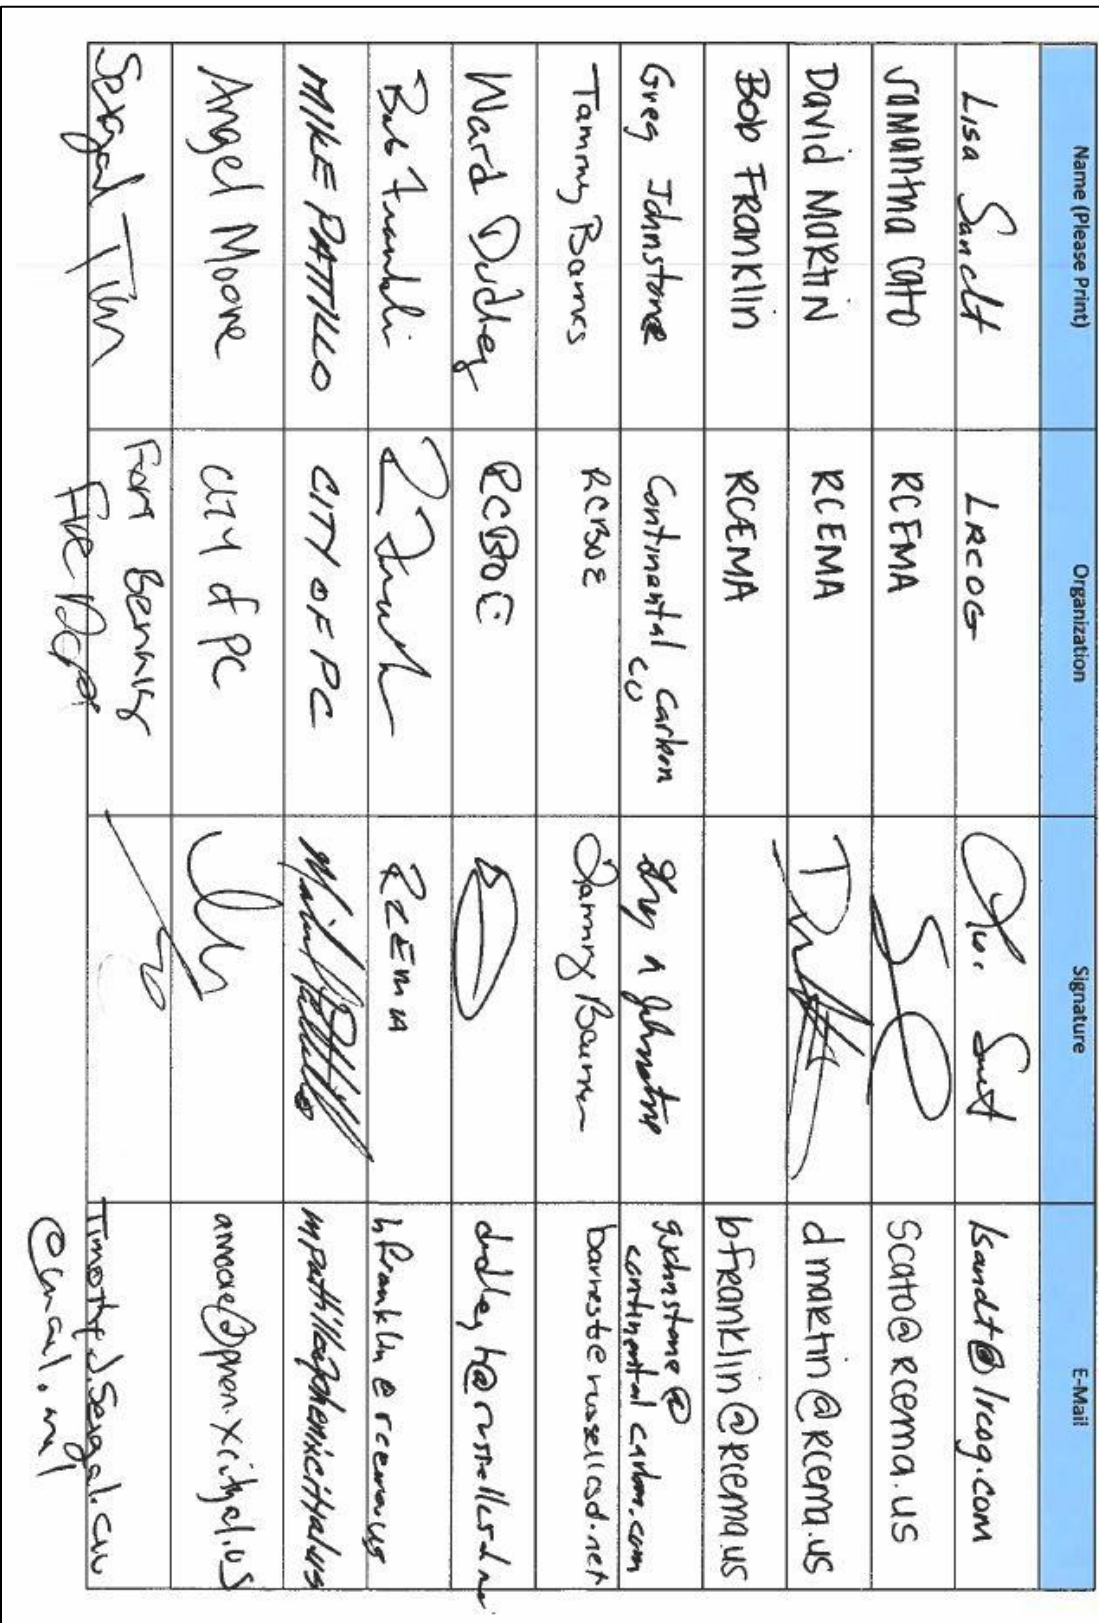 Name (Please Print) Organization Signature E-Mail
Lisa Sandt LRCOG lsandt@lrcog.com
Samantha Cato RCEMA scato@rcema.us
David Martin RCEMA dmartin@rcema.us
Bob Franklin RCEMA bfranklin@rcema.us
Greg Johnstone Continental Carbon
CO
gjohnstone@
continentalcarbon.com
Tammy Barnes RCBOE Tammy Barnes
Ward Dudley RCBOE
Bob Franklin RCEMA bfranklin@rcema.us
MIKE PATTILLO CITY OF PC mpattillo@phenixcityal.us
Angel Moore CITY of PC amoore@phenixcityal.us
Fort Benning
Fire Dept